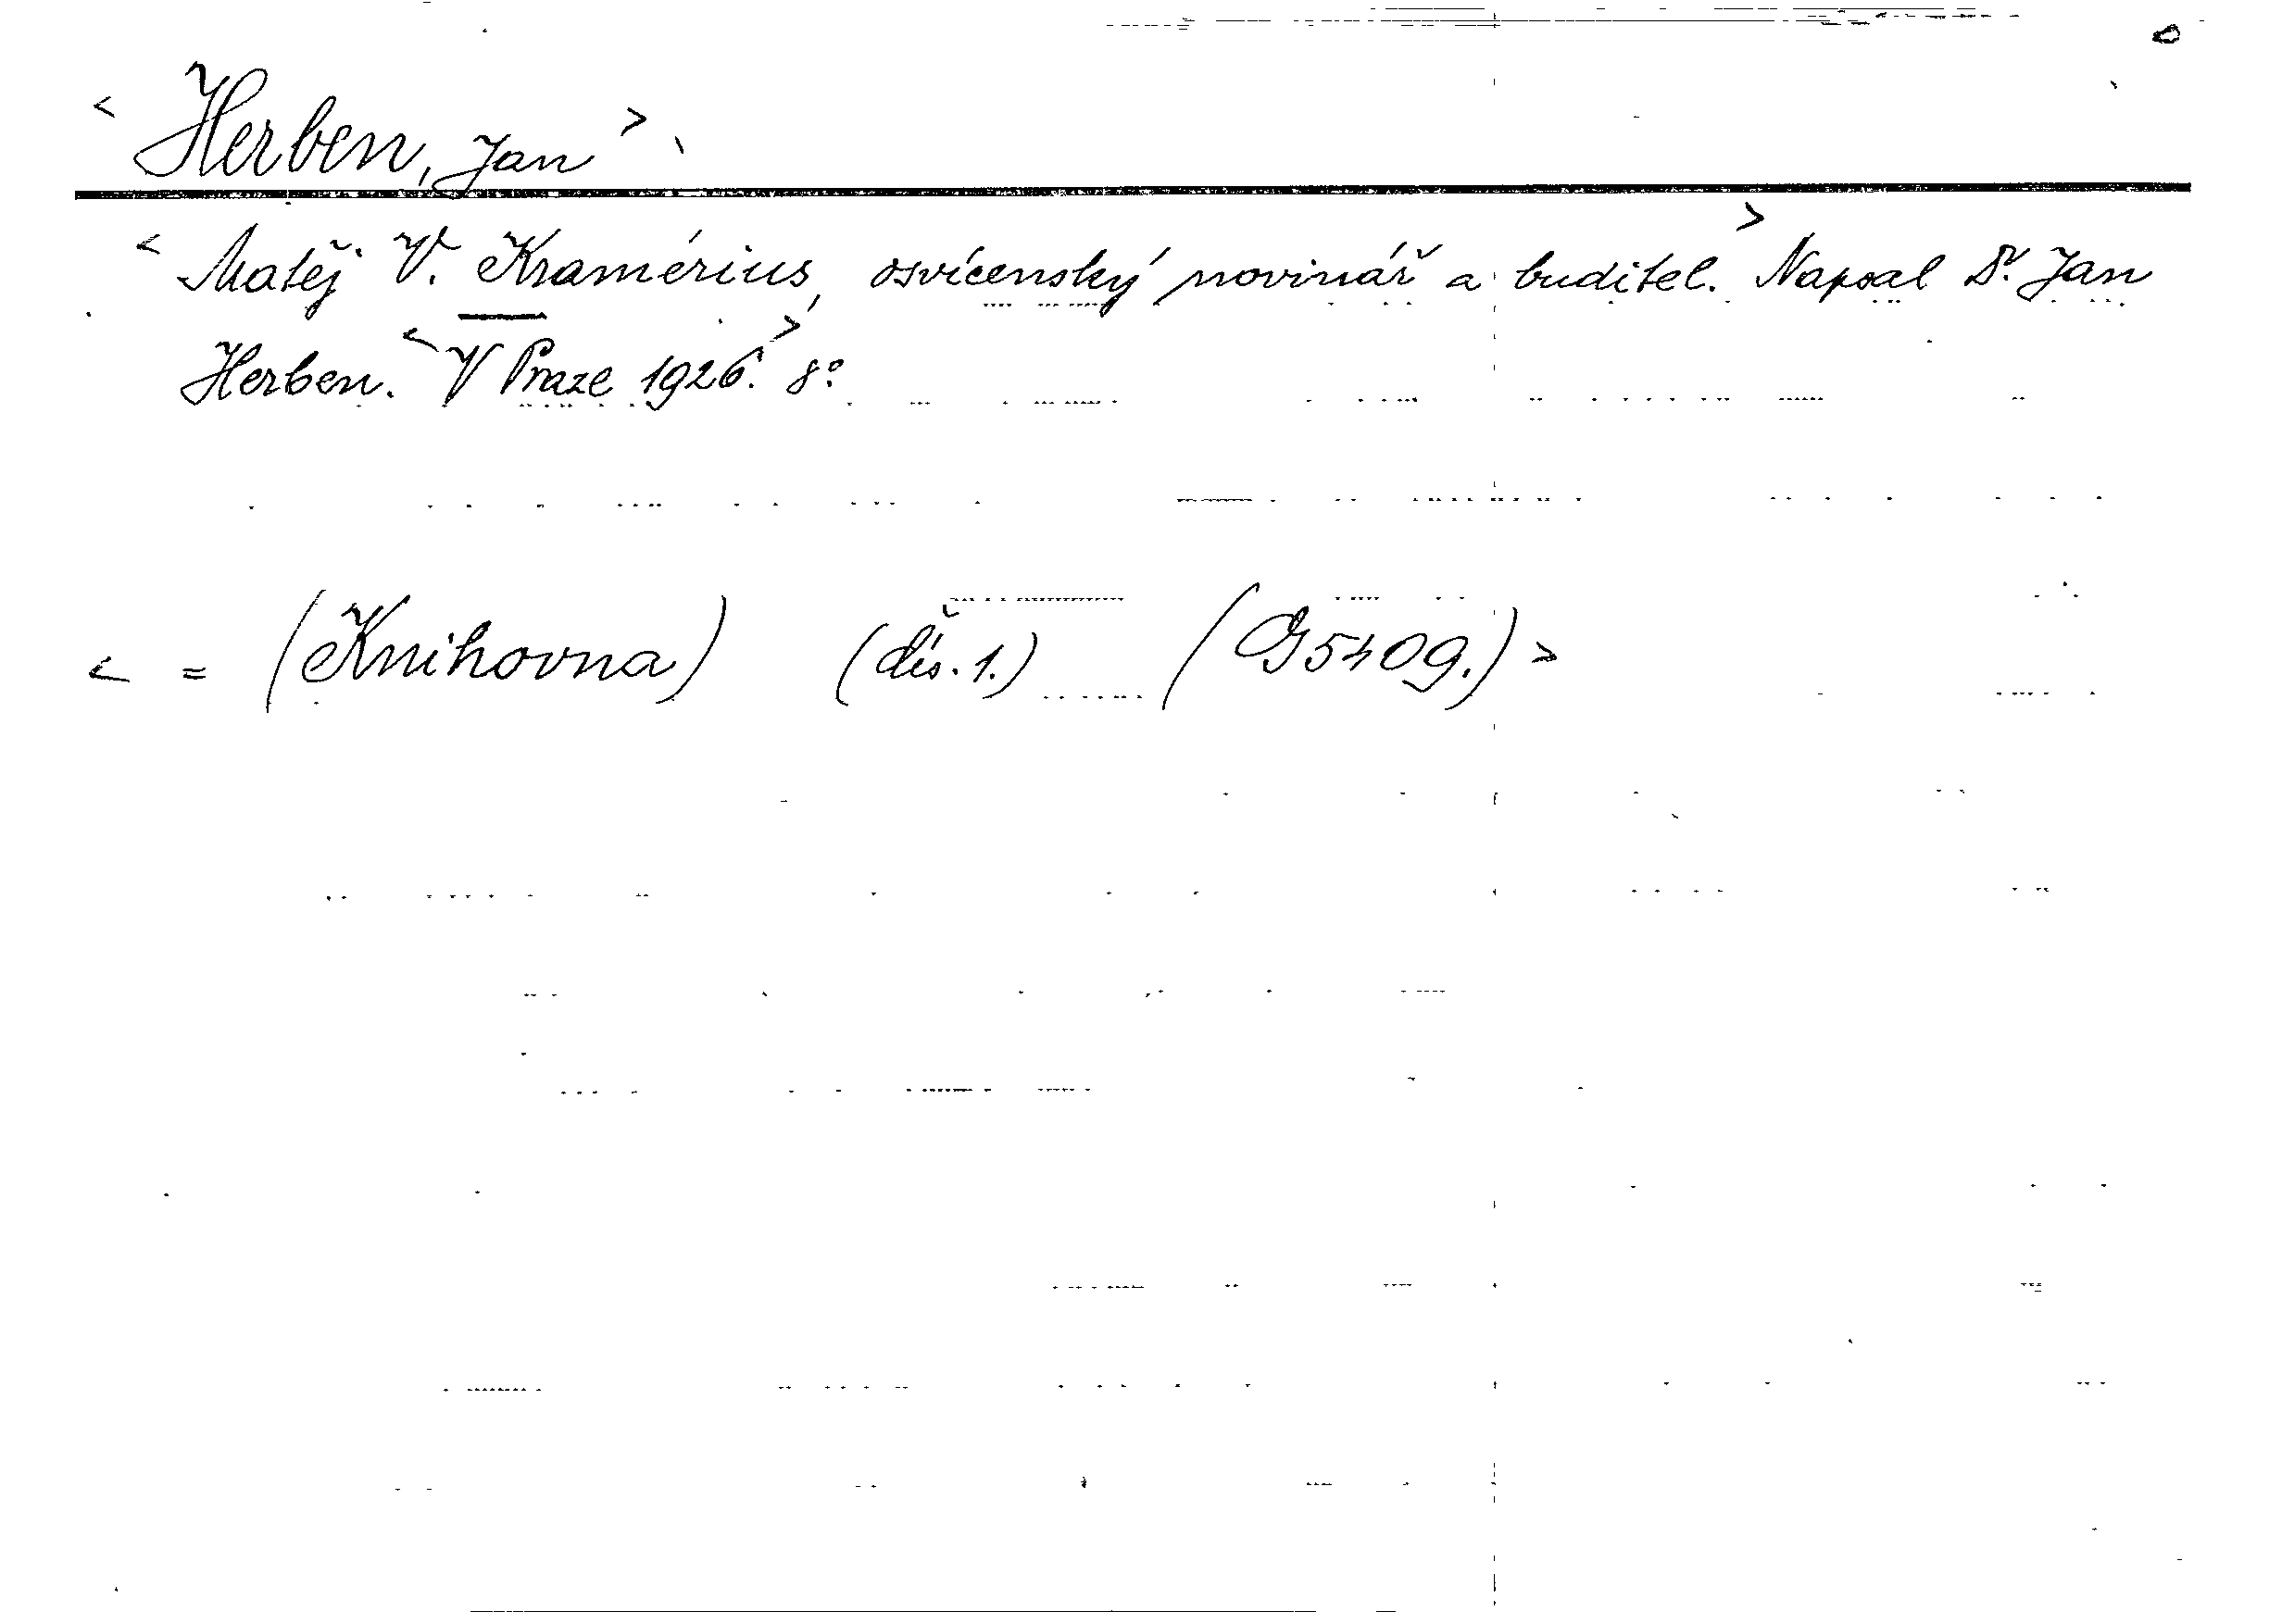 < Herben, Jan >
< Matěj V. Kramérius, osvícenský novinář a buditel. > Napsal Dr. Jan
Herben. < V Praze 1926. > 8°
< = (Knihovna) (čís. 1.) (G 5409.) >